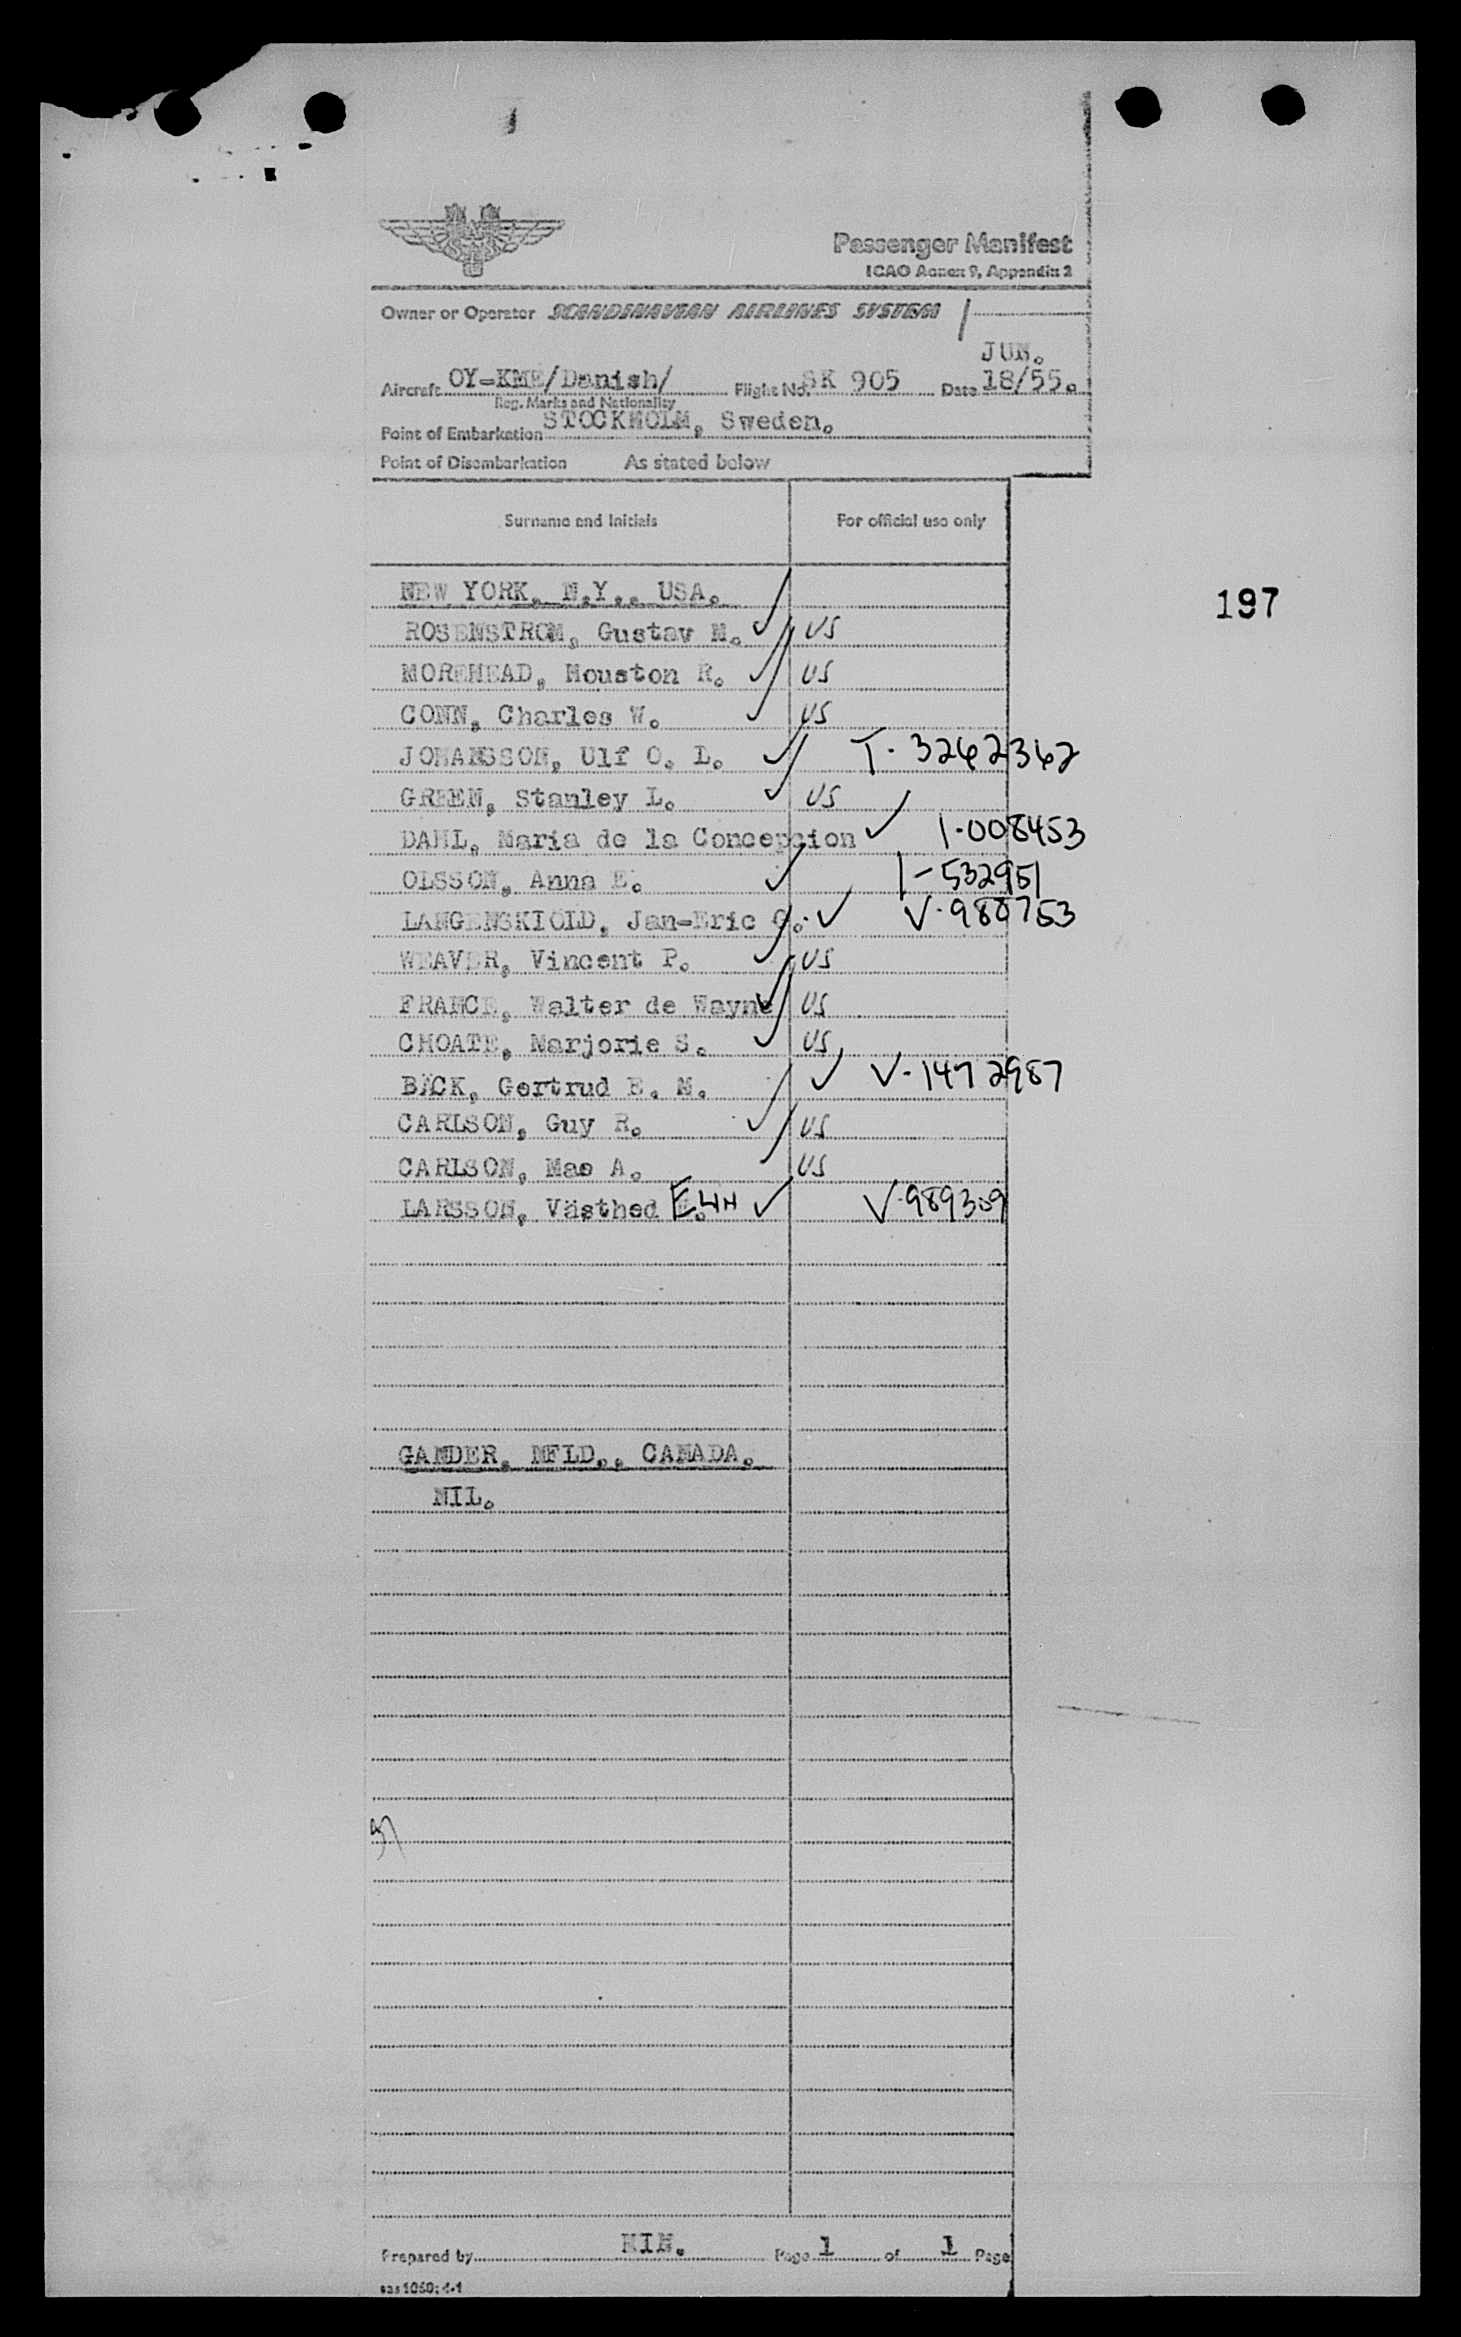 Passenger Manifest
ICAO Annex 9, Appendix 2
Owner or Operator SCANDINAVIAN AIRLINES SYSTEM
JUN.
Aircraft OY-KME/Danish/ Flight No. SK 905 Date 18/55.
Reg. Marks and Nationality
Point of Embarkation STOCKHOLM, Sweden.
Point of Disembarkation As stated below
Surname and Initials For official use only
NEW YORK, N.Y., USA.
197
ROSENSTROM, Gustav N. ✓ US
MOREHEAD, Houston R. ✓ US
CONN, Charles W. ✓ US
JOHANSSON, Ulf O. L. ✓ T-3262362
GREEN, Stanley L. ✓ US
DAHL, Maria de la Concepcion ✓ 1-008453
OLSSON, Anna E. ✓ 1-532951
LANGENSKIOLD, Jan-Eric G. ✓ V-988753
WEAVER, Vincent P. ✓ US
FRANCE, Walter de Wayne ✓ US
CHOATE, Marjorie S. ✓ US
BÄCK, Gertrud E. M. ✓ V-1472987
CARLSON, Guy R. ✓ US
CARLSON, Mae A. ✓ US
LARSSON, Västhed ✓ V-989309
GANDER, NFLD., CANADA.
NIL.
Prepared by Page 1 of 1 Page
sas 1060; 4-1